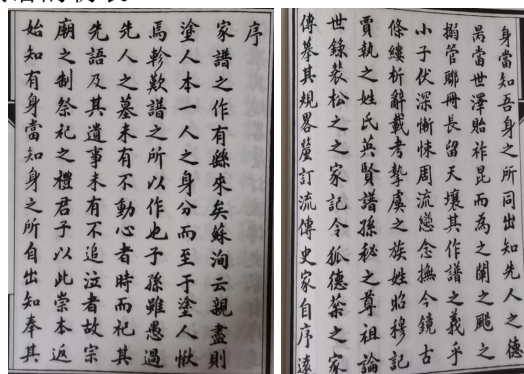 序
家譜之作有繇來矣蘇洵云親盡則
塗人本一人之身分而至于塗人愀
焉軫歎譜之所以作也子孫雖愚過
先人之墓未有不動心者時而祀其
先語及其遺事未有不追泣者故宗
廟之制祭祀之禮君子以此崇本返
始知有身當知身之所自出知奉其
身當知吾身之所同出知先人之德
昺當世澤貽祚昆而為之闡之颺之
搦管聯冊長留天壤其作譜之義乎
小子伏深慚悚周流戀念撫今鏡古
條縷析辭載考摯虞之族姓昭穆記
賈執之姓氏英賢譜孫秘之尊祖論
世錄裴松之之家記令狐德棻之家
傳摹其規畧釐訂流傳史家自序遠